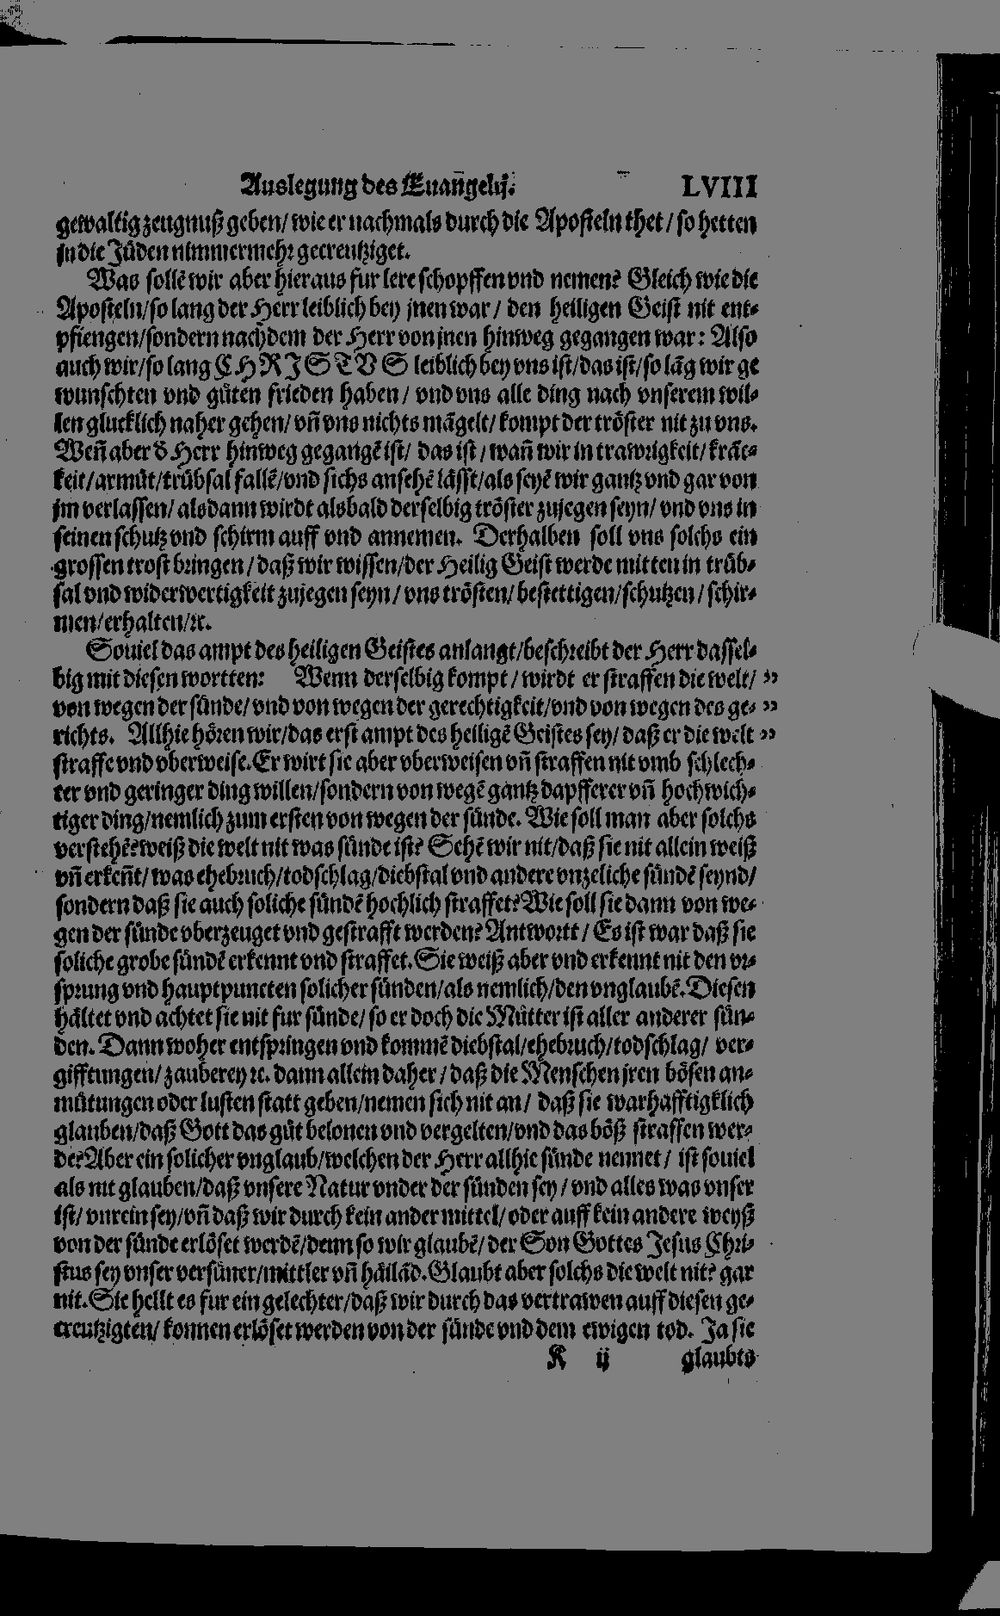 Auslegung des Euañgelij. LVIII
gewaltig zeugnuß geben/ wie er nachmals durch die Aposteln thet/ so hetten
jn die Jüden nimmermehr gecreutziget.
Was sollē wir aber hieraus fur lere schopffen vnd nemen? Gleich wie die
Aposteln/ so lang der Herr leiblich bey jnen war/ den heiligen Geist nit ent-
pfiengen/ sondern nachdem der Herr von jnen hinweg gegangen war: Also
auch wir/ so lang CHRISTVS leiblich bey vns ist/ das ist/ so lāg wir ge
wunschten vnd gůten frieden haben/ vnd vns alle ding nach vnserem wil-
len glucklich naher gehen/ vñ vns nichts māgelt/ kompt der tröster nit zu vns.
Weñ aber d Herr hinweg gegangē ist/ das ist/ wañ wir in trawrigkeit/ kräc-
keit/ armůt/ trübsal fallē/ vnd sichs ansehē lässt/ als seyē wir gantz vnd gar von
jm verlassen/ alsdann wirdt alsbald derselbig tröster zujegen seyn/ vnd vns in
seinen schutz vnd schirm auff vnd annemen. Derhalben soll vns solchs ein
grossen trost bringen/ daß wir wissen/ der Heilig Geist werde mitten in trüb-
sal vnd widerwertigkeit zujegen seyn/ vns trösten/ bestettigen/ schutzen/ schir-
men/ erhalten/ ꝛc.
Souiel das ampt des heiligen Geistes anlangt/ beschreibt der Herr dassel-
big mit diesen wortten: Wenn derselbig kompt/ wirdt er straffen die welt/ ”
von wegen der sünde/ vnd von wegen der gerechtigkeit/ vnd von wegen des ge- ”
richts. Allhie hören wir/ das erst ampt des heiligē Geistes sey/ daß er die welt ”
straffe vnd vberweise. Er wirt sie aber vberweisen vñ straffen nit vmb schlech-
ter vnd geringer ding willen/ sondern von wegē gantz dapfferer vñ hochwich-
tiger ding/ nemlich zum ersten von wegen der sünde. Wie soll man aber solchs
verstehē? weiß die welt nit was sünde ist? Sehē wir nit/ daß sie nit allein weiß
vñ erkeñt/ was ehebruch/ todschlag/ diebstal vnd andere vnzeliche sündē seynd/
sondern daß sie auch soliche sündē hochlich straffet? Wie soll sie dann von we-
gen der sünde vberzeuget vnd gestrafft werden? Antwortt/ Es ist war daß sie
soliche grobe sündē erkennt vnd straffet. Sie weiß aber vnd erkennt nit den vr-
sprung vnd hauptpuncten solicher sünden/ als nemlich/ den vnglaubē. Diesen
hältet vnd achtet sie nit fur sünde/ so er doch die Můtter ist aller anderer sün-
den. Dann woher entspringen vnd kommē diebstal/ ehebruch/ todschlag/ ver-
gifftungen/ zauberey ꝛc. dann allein daher/ daß die Menschen jren bösen an-
můtungen oder lusten statt geben/ nemen sich nit an/ daß sie warhafftigklich
glauben/ daß Gott das gůt belonen vnd vergelten/ vnd das böß straffen wer-
de? Aber ein solicher vnglaub/ welchen der Herr allhie sünde nennet/ ist souiel
als nit glauben/ daß vnsere Natur vnder der sünden sey/ vnd alles was vnser
ist/ vnrein sey/ vñ daß wir durch kein ander mittel/ oder auff kein andere weyß
von der sünde erlöset werdē/ denn so wir glaubē/ der Son Gottes Jesus Chri-
stus sey vnser versüner/ mittler vñ häilād. Glaubt aber solchs die welt nit? gar
nit. Sie hellt es fur ein gelechter/ daß wir durch das vertrawen auff diesen ge-
creutzigten/ konnen erlöset werden von der sünde vnd dem ewigen tod. Ja sie
K ij glaubts